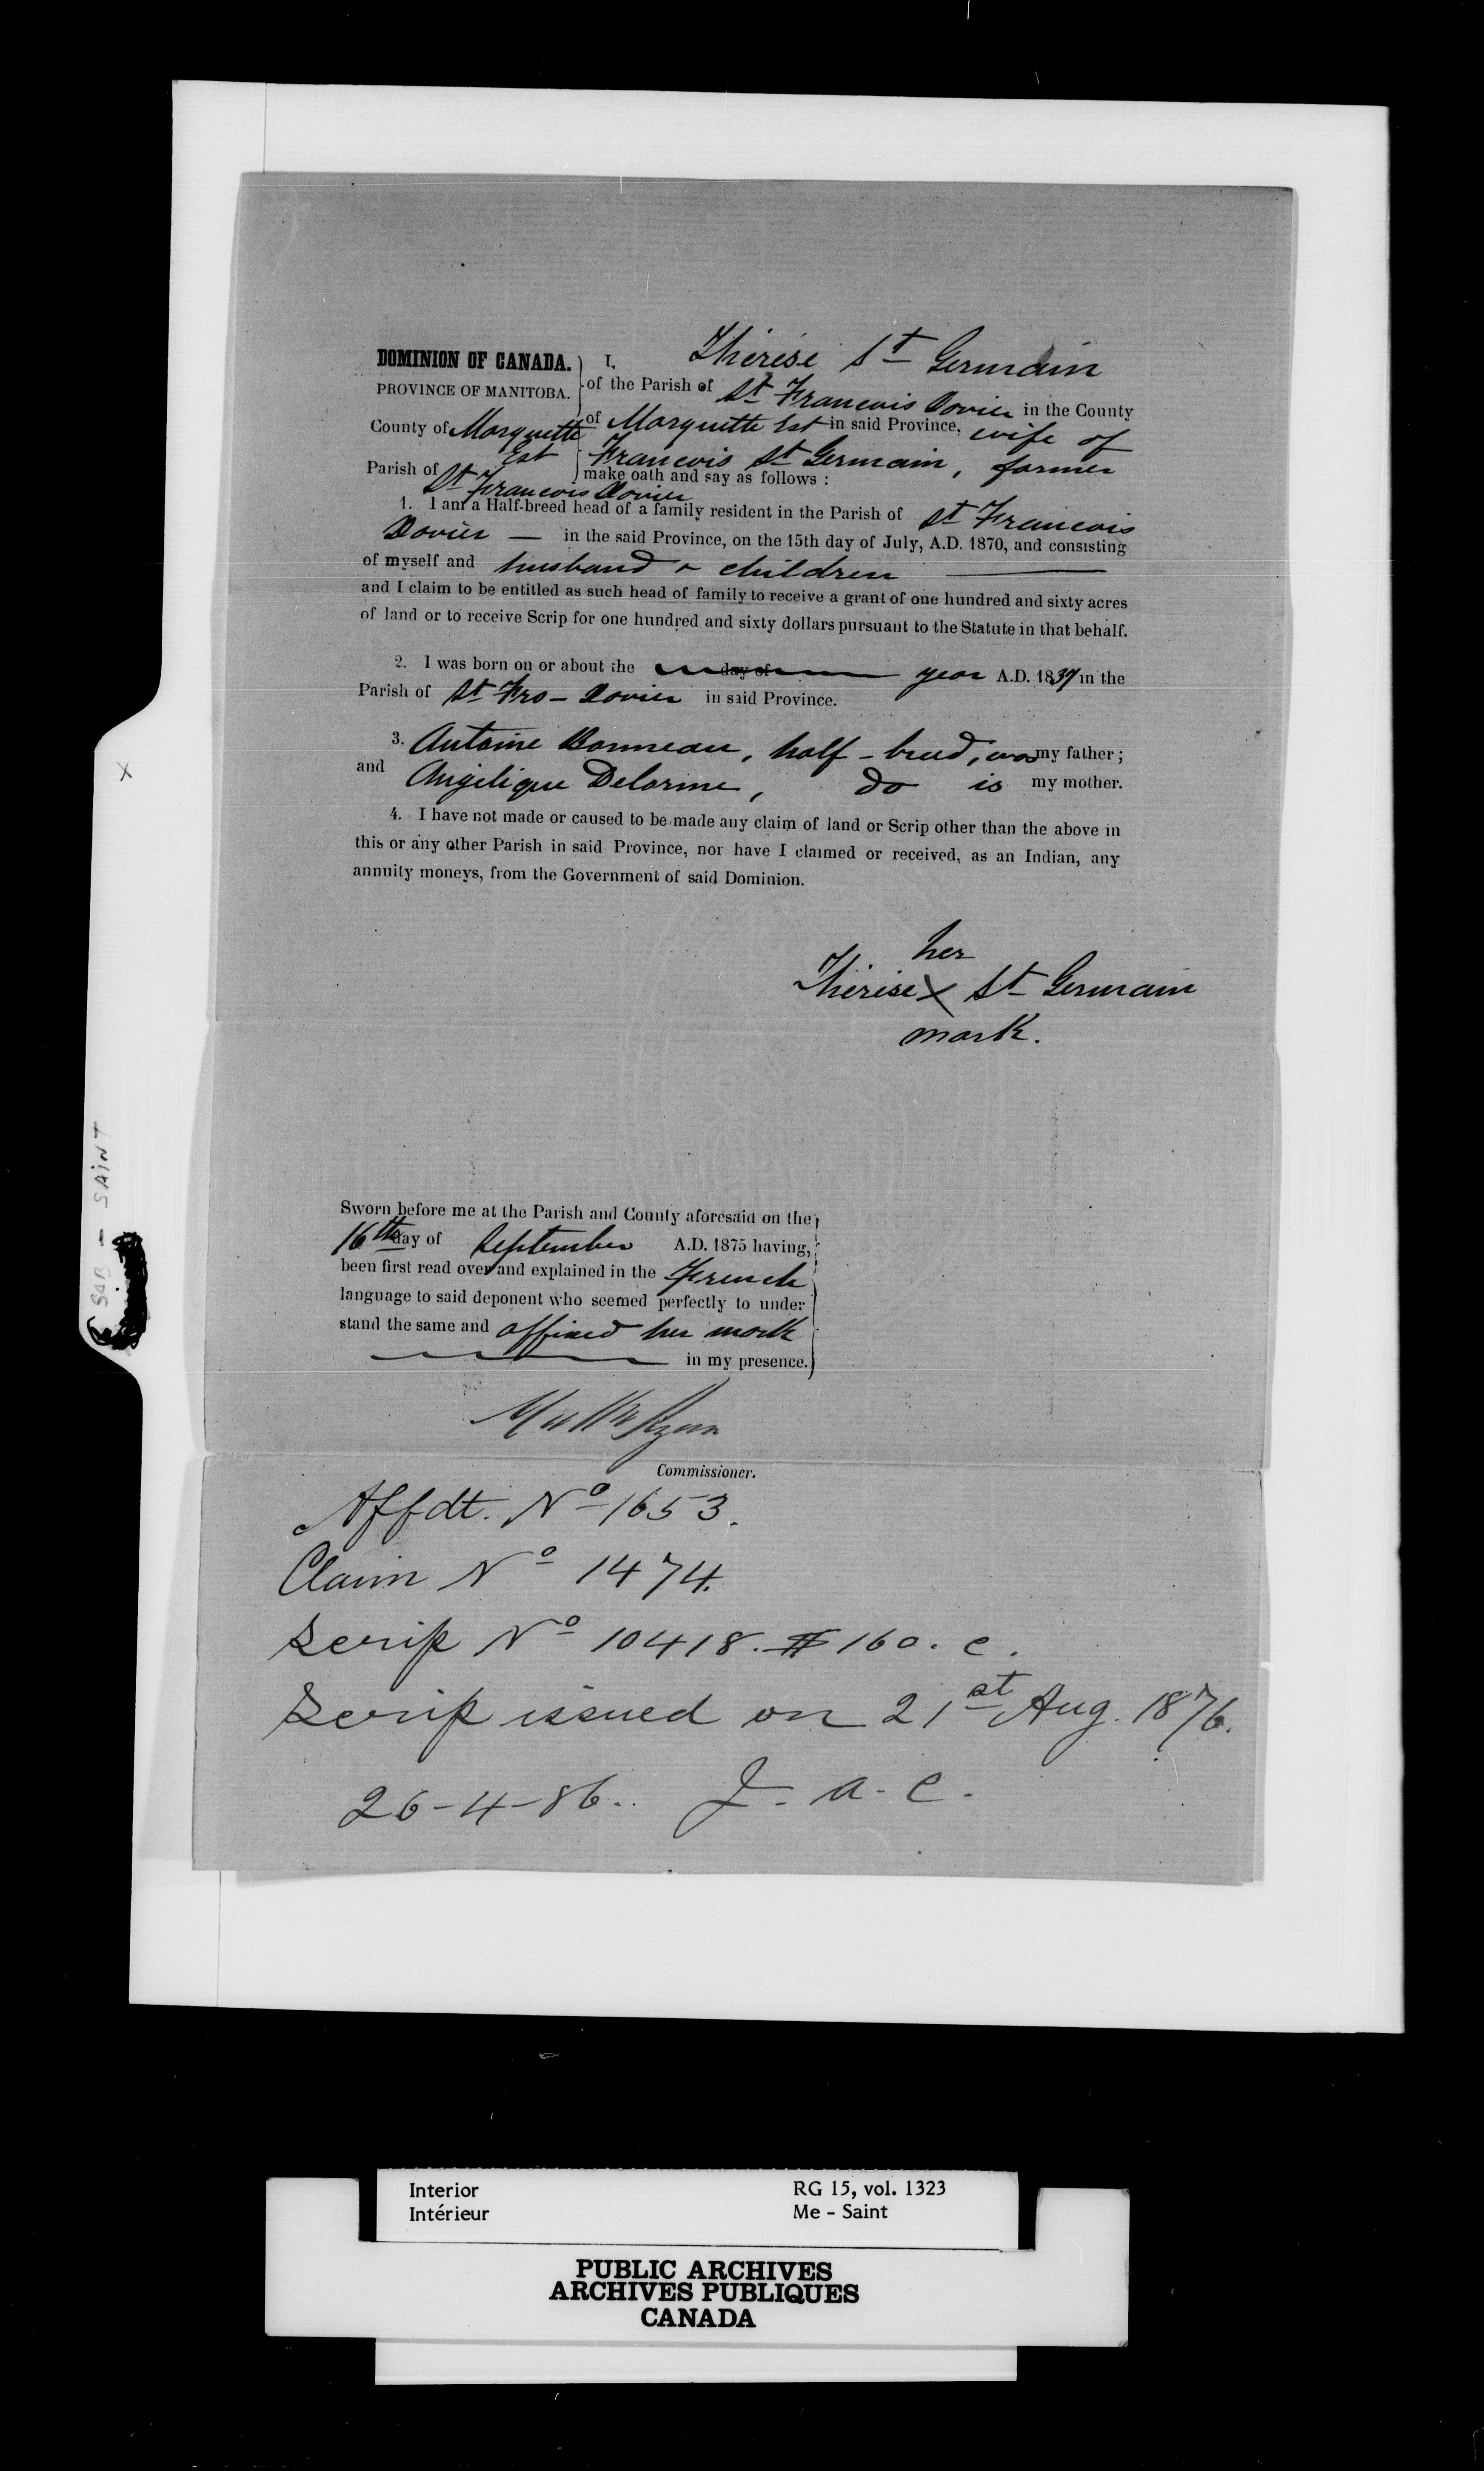 DOMINION OF CANADA.
PROVINCE OF MANITOBA.
County of Marquette
Est
Parish of
St Francois Xavier
I, Thérèse St Germain
of the Parish of St Francois Xavier in the County
of Marquette Est in said Province, wife of
Francois St Germain, farmer
make oath and say as follows :
1. I am a Half-breed head of a family resident in the Parish of St Francois
Xavier — in the said Province, on the 15th day of July, A.D. 1870, and consisting
of myself and husband & children
and I claim to be entitled as such head of family to receive a grant of one hundred and sixty acres
of land or to receive Scrip for one hundred and sixty dollars pursuant to the Statute in that behalf.
2. I was born on or about the day of year A.D. 1837 in the
Parish of St Fro- Xavier in said Province.
3. Antoine Bonneau, half-breed, was my father ;
and Angelique Delorme, do is my mother.
4. I have not made or caused to be made any claim of land or Scrip other than the above in
this or any other Parish in said Province, nor have I claimed or received, as an Indian, any
annuity moneys, from the Government of said Dominion.
her
Thérèse X St Germain
mark.
Sworn before me at the Parish and County aforesaid on the
16th day of September A.D. 1875 having,
been first read over and explained in the French
language to said deponent who seemed perfectly to under
stand the same and affixed her mark
in my presence.
Matt Ryan
Commissioner.
Affdt. No 1653.
Claim No 1474.
Scrip No 10418. $160. c.
Scrip issued on 21st Aug. 1876.
26-4-86. J. a. C.
X
SAB - SAINT
Interior
Intérieur
RG 15, vol. 1323
Me - Saint
PUBLIC ARCHIVES
ARCHIVES PUBLIQUES
CANADA